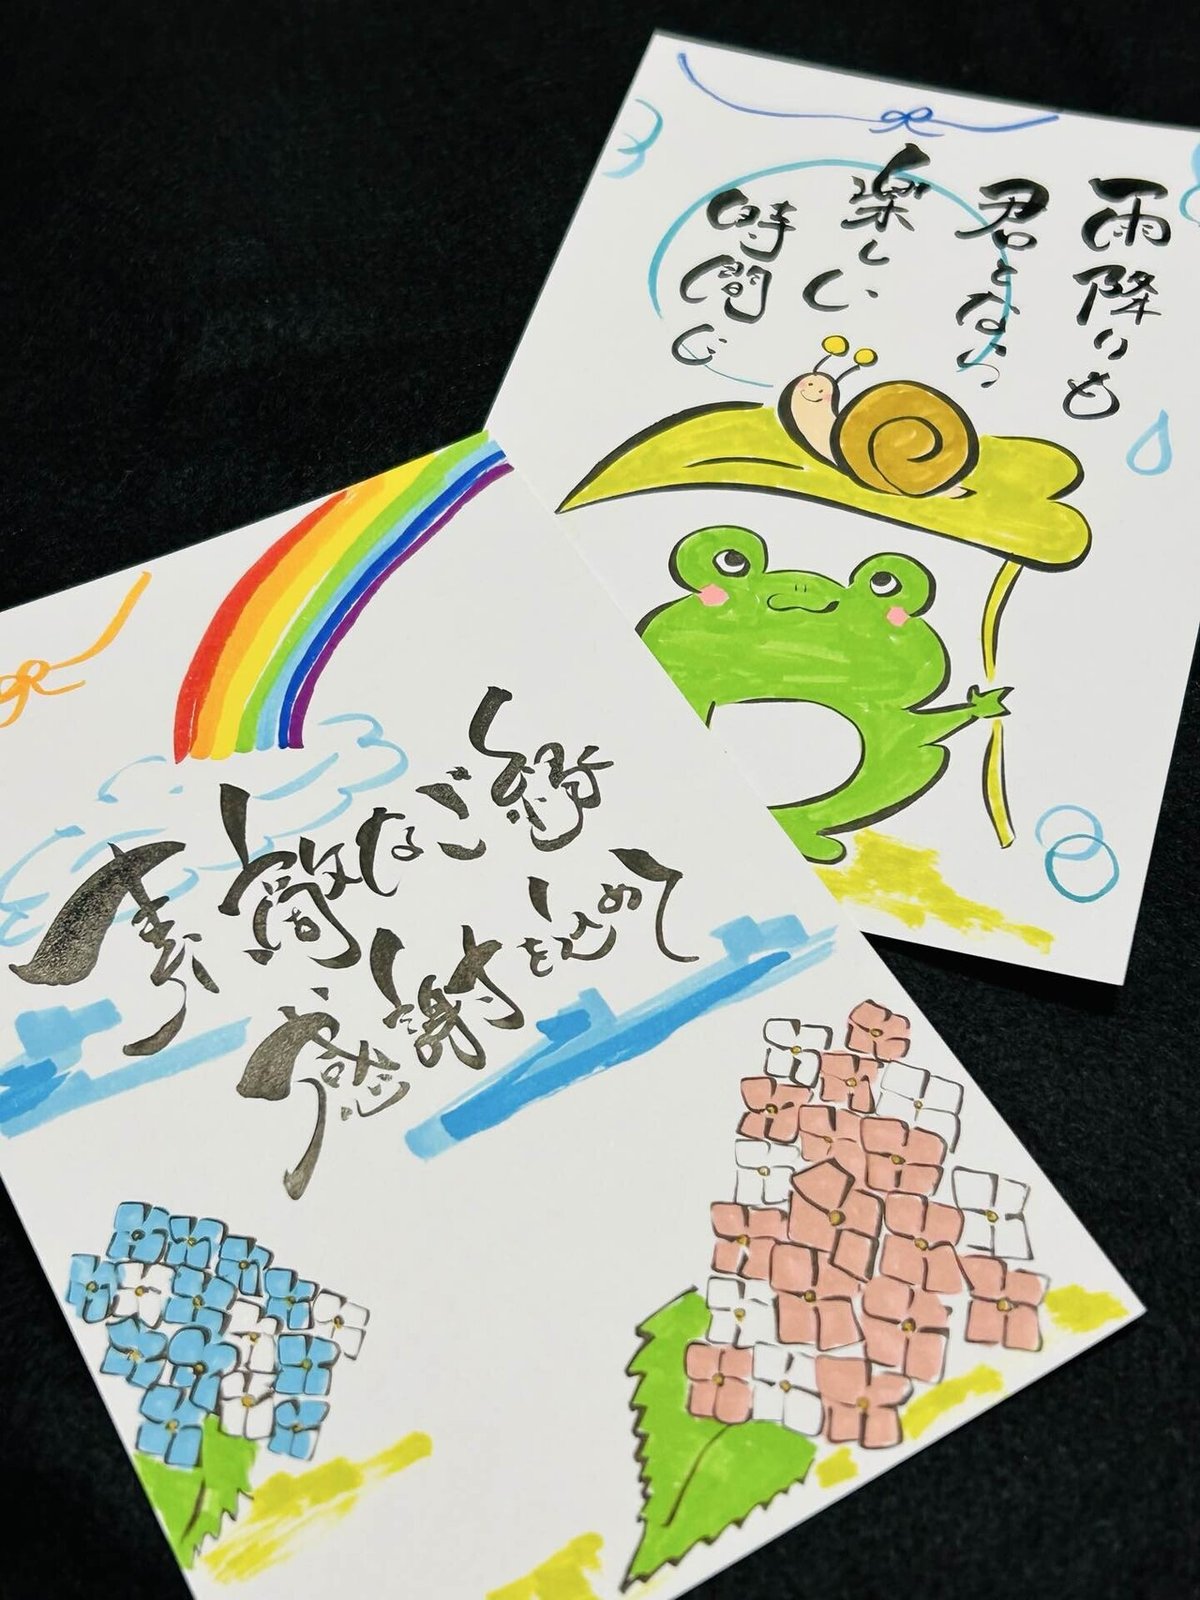 雨降りも
君となら
楽しい
時間に
素敵なご縁
感謝を込めて